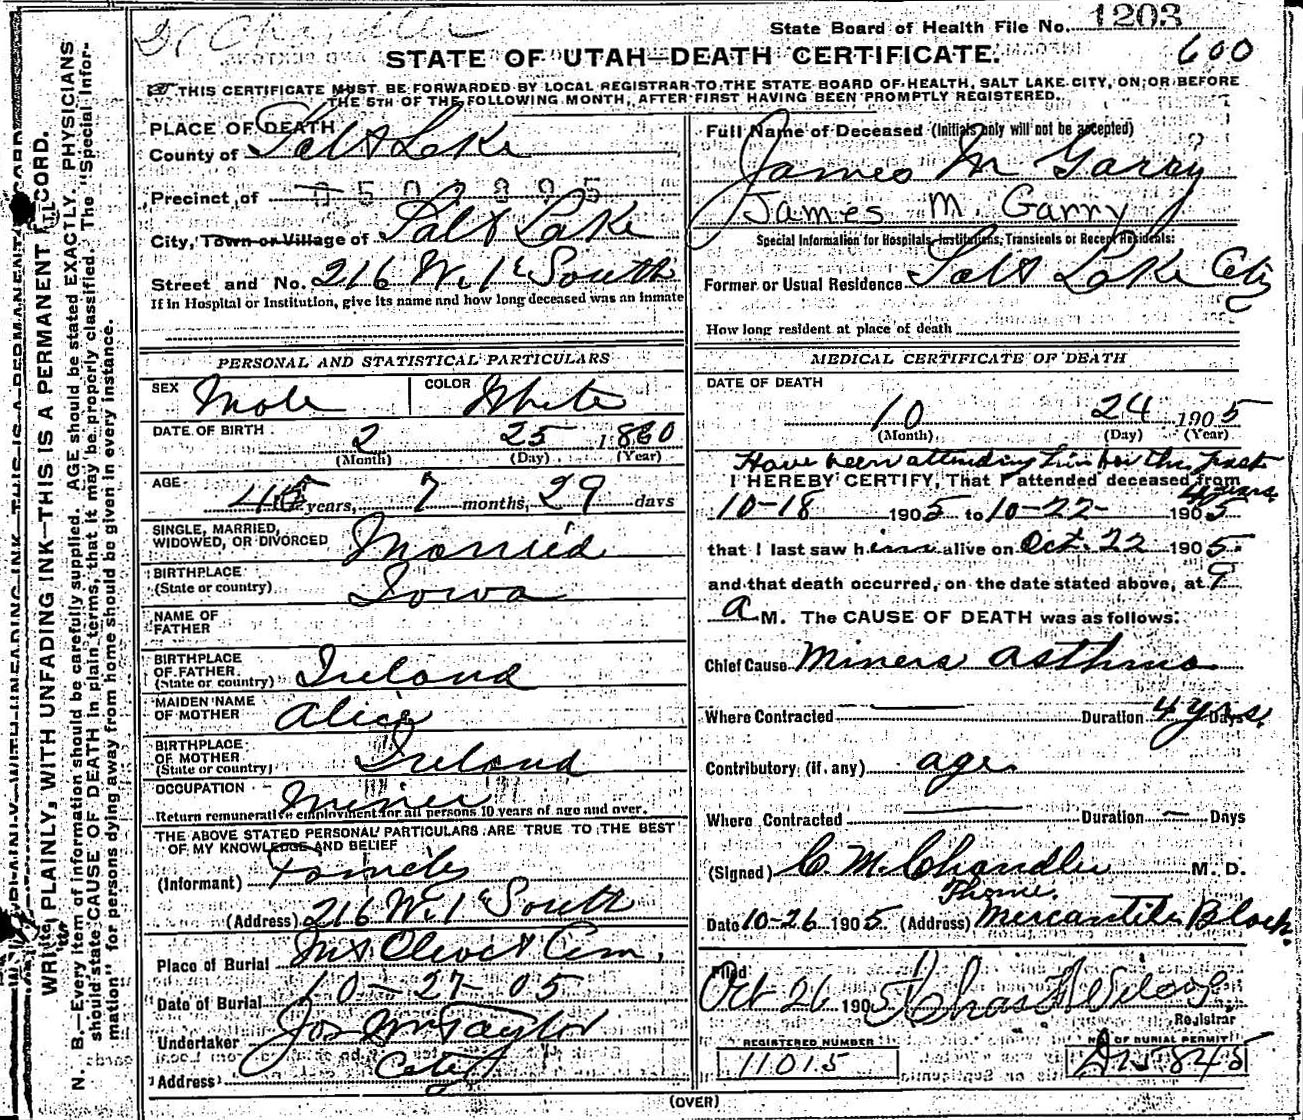 Dr Chandler
State Board of Health File No. 1203
STATE OF UTAH—DEATH CERTIFICATE.
600
THIS CERTIFICATE MUST BE FORWARDED BY LOCAL REGISTRAR TO THE STATE BOARD OF HEALTH, SALT LAKE CITY, ON OR BEFORE
THE 5TH OF THE FOLLOWING MONTH, AFTER FIRST HAVING BEEN PROMPTLY REGISTERED.
WRITE PLAINLY, WITH UNFADING INK—THIS IS A PERMANENT RECORD.
N. B.—Every item of information should be carefully supplied. AGE should be stated EXACTLY. PHYSICIANS
should state CAUSE OF DEATH in plain terms, that it may be properly classified. The "Special Infor-
mation" for persons dying away from home should be given in every instance.
PLACE OF DEATH
County of Salt Lake
Precinct of
City, Town or Village of Salt Lake
Street and No. 216 W. 1st South
If in Hospital or Institution, give its name and how long deceased was an inmate
PERSONAL AND STATISTICAL PARTICULARS
SEX Male COLOR White
DATE OF BIRTH 2 25 1860
(Month) (Day) (Year)
AGE 45 years, 7 months, 29 days
SINGLE, MARRIED, WIDOWED, OR DIVORCED Married
BIRTHPLACE (State or country) Iowa
NAME OF FATHER
BIRTHPLACE OF FATHER (State or country) Ireland
MAIDEN NAME OF MOTHER Alice
BIRTHPLACE OF MOTHER (State or country) Ireland
OCCUPATION Miner
Return remunerative employment for all persons 10 years of age and over.
THE ABOVE STATED PERSONAL PARTICULARS ARE TRUE TO THE BEST
OF MY KNOWLEDGE AND BELIEF
(Informant)
(Address) 216 W. 1st South
Place of Burial Mt Olivet Cem.
Date of Burial 10-27-05
Undertaker Jos Wm Taylor
Address City
Full Name of Deceased (Initials only will not be accepted)
James M Garry
James M. Garry
Special Information for Hospitals, Institutions, Transients or Recent Residents:
Former or Usual Residence Salt Lake City
How long resident at place of death
MEDICAL CERTIFICATE OF DEATH
DATE OF DEATH
10 24 1905
(Month) (Day) (Year)
Have been attending him for the past
4 years
I HEREBY CERTIFY, That I attended deceased from
10-18 1905 to 10-22- 1905
that I last saw him alive on Oct. 22 1905.
and that death occurred, on the date stated above, at 9
a M. The CAUSE OF DEATH was as follows:
Chief Cause Miners asthma
Where Contracted Duration 4 yrs. Days
Contributory (if any) age
Where Contracted Duration — Days
(Signed) C. M. Chandler M. D.
Date 10-26 1905 (Address) Mercantile Block.
Filed
Oct 26 1905
Registrar
REGISTERED NUMBER
11015
NO. OF BURIAL PERMIT
845
(OVER)